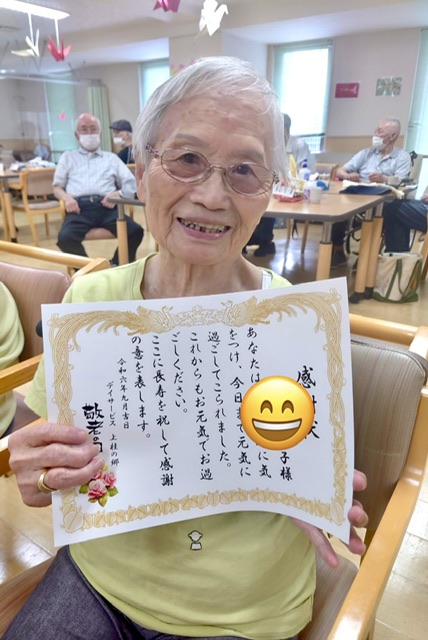 感謝状
子様
あなたは に気
をつけ、今日まで元気に
過ごしてこられました。
これからもお元気でお過
ごしください。
ここに長寿を祝して感謝
の意を表します。
令和六年九月吉日
デイサービス 上桂の郷
敬老の